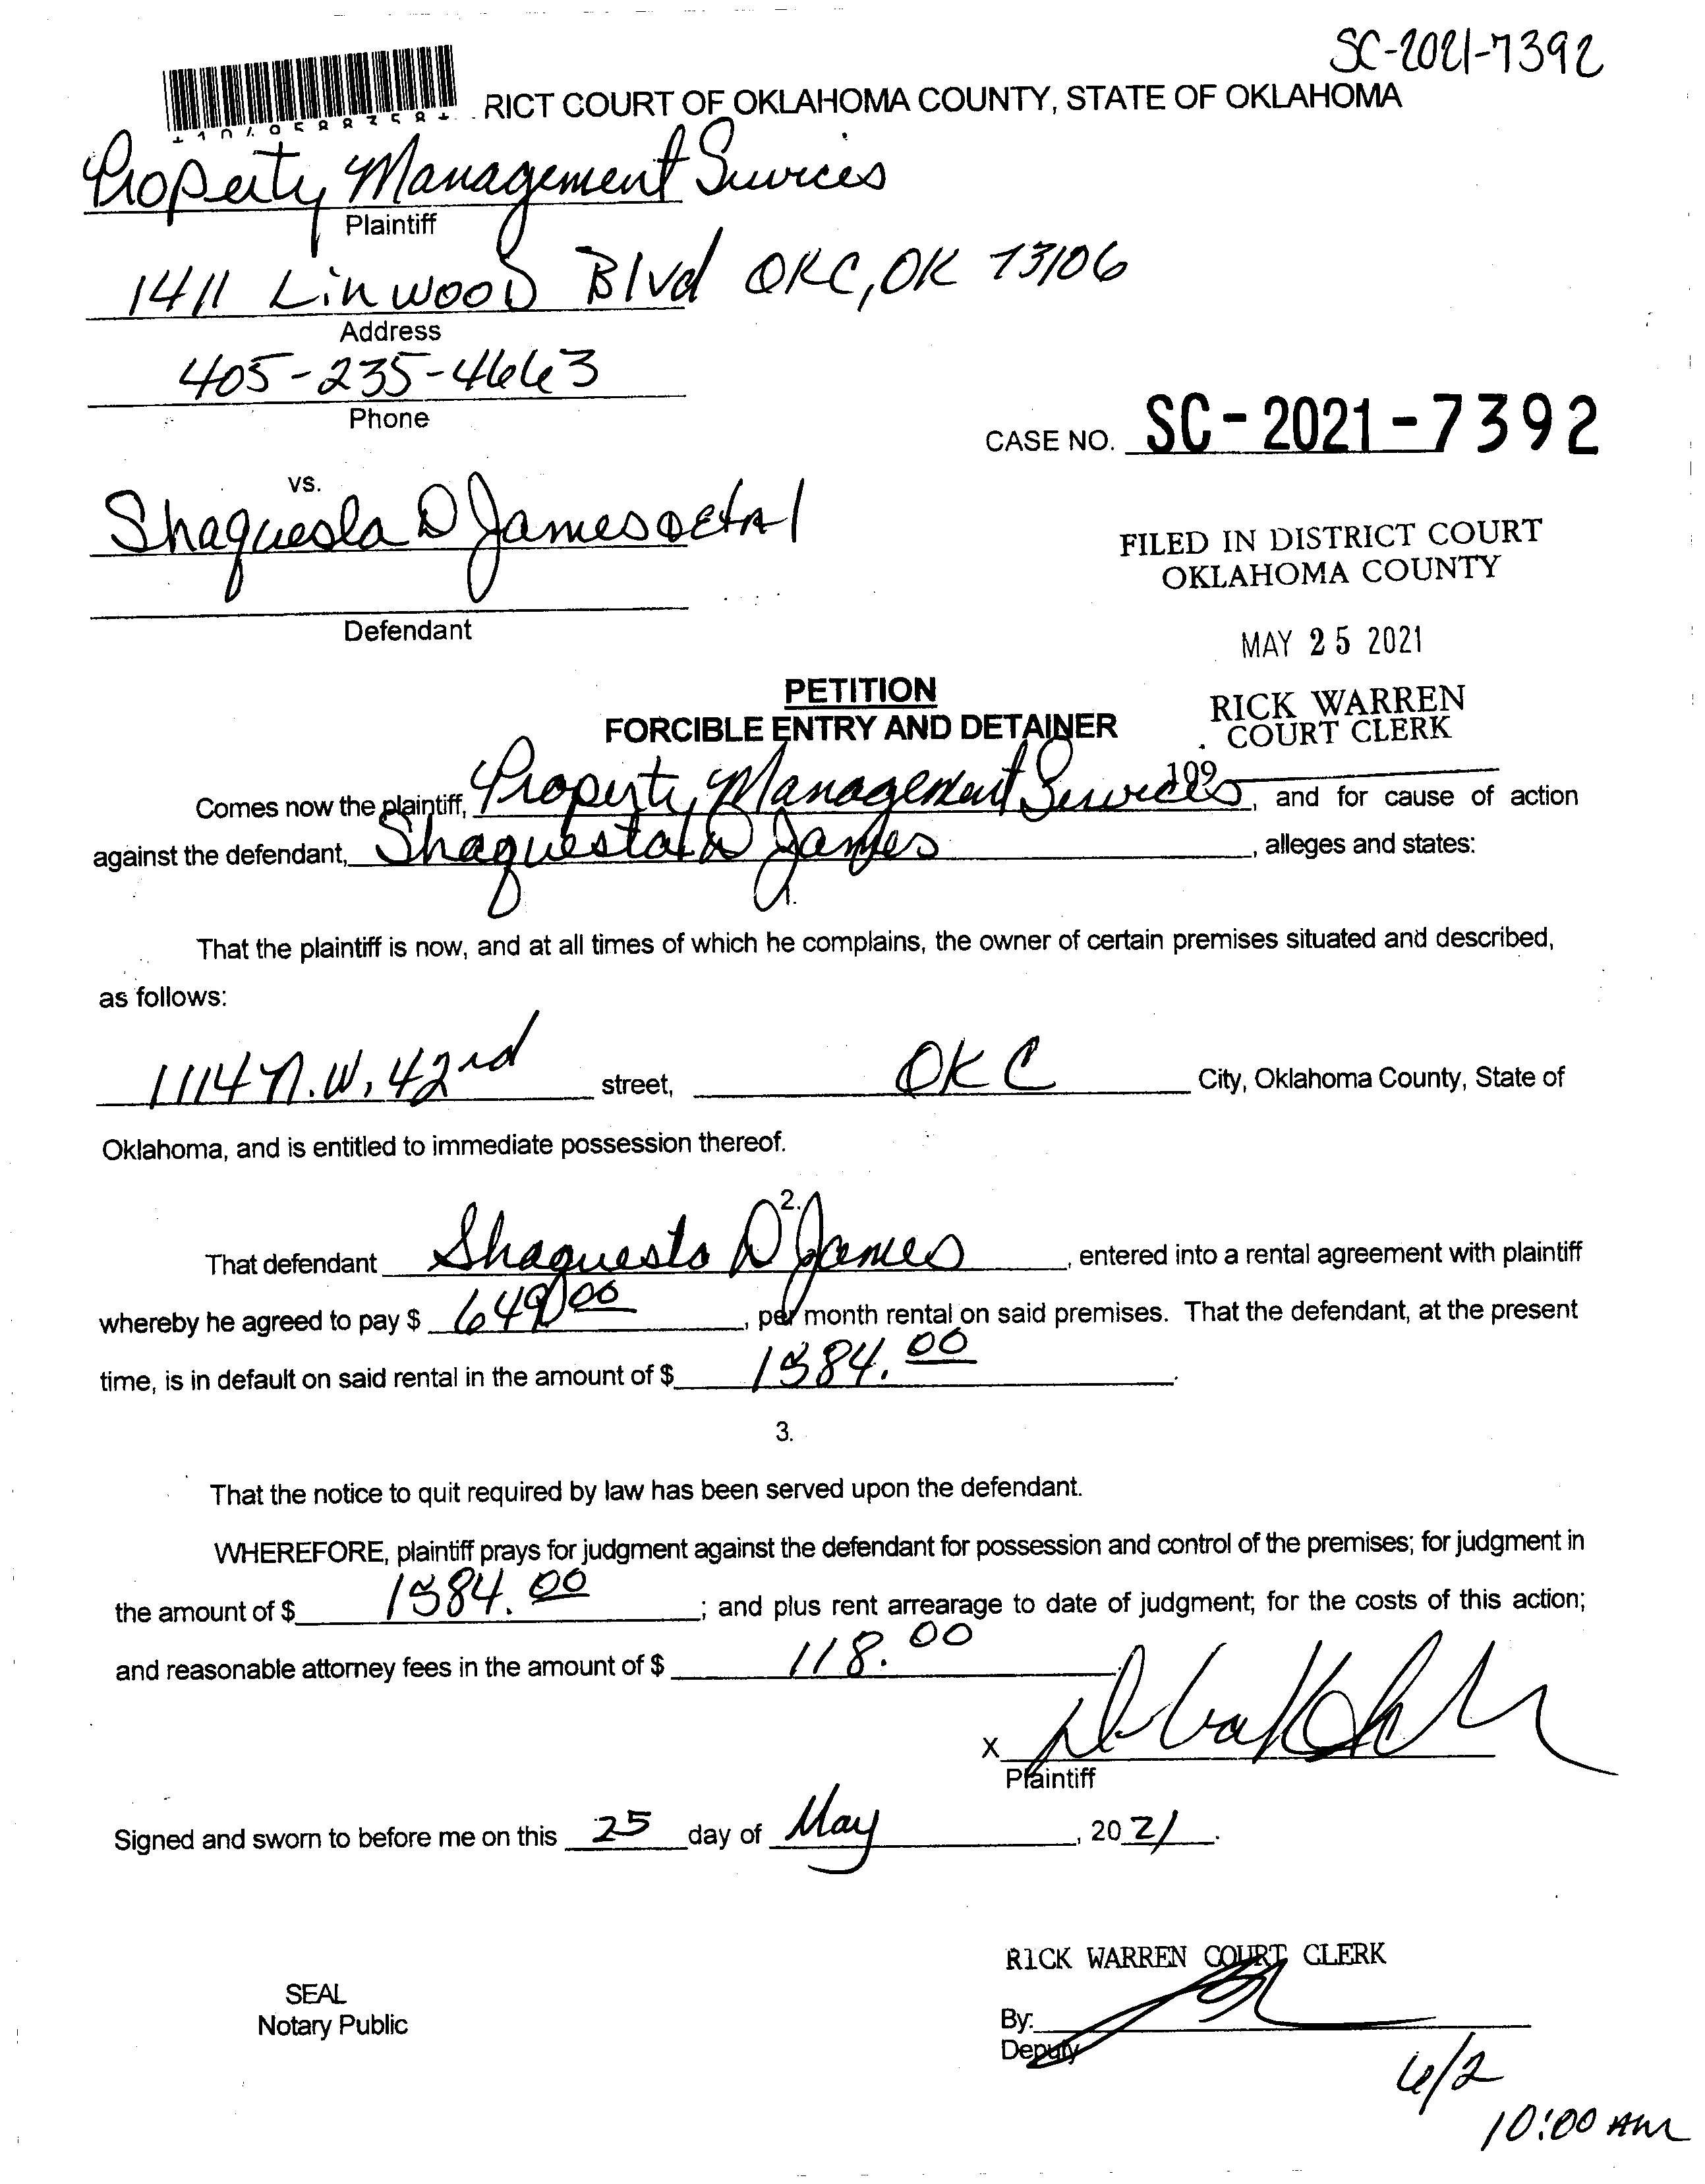 SC-2021-7392
RICT COURT OF OKLAHOMA COUNTY, STATE OF OKLAHOMA
Property Management Services
Plaintiff
1411 Linwood Blvd OKC, OK 73106
Address
405-235-4663
Phone
CASE NO. SC-2021-7392
vs.
Shaquesta D James et Al
Defendant
FILED IN DISTRICT COURT
OKLAHOMA COUNTY
MAY 25 2021
RICK WARREN
COURT CLERK
109
PETITION
FORCIBLE ENTRY AND DETAINER
Comes now the plaintiff, Property Management Services, and for cause of action
against the defendant, Shaquesta D James, alleges and states:
1.
That the plaintiff is now, and at all times of which he complains, the owner of certain premises situated and described,
as follows:
1114 N.W. 42nd street, OKC City, Oklahoma County, State of
Oklahoma, and is entitled to immediate possession thereof.
2.
That defendant Shaquesta D James, entered into a rental agreement with plaintiff
whereby he agreed to pay $ 649.00, per month rental on said premises. That the defendant, at the present
time, is in default on said rental in the amount of $ 1584.00.
3.
That the notice to quit required by law has been served upon the defendant.
WHEREFORE, plaintiff prays for judgment against the defendant for possession and control of the premises; for judgment in
the amount of $ 1584.00; and plus rent arrearage to date of judgment; for the costs of this action;
and reasonable attorney fees in the amount of $ 118.00
X
Plaintiff
Signed and sworn to before me on this 25 day of May, 2021.
RICK WARREN COURT CLERK
SEAL
Notary Public
By:
Deputy
6/2
10:00 AM